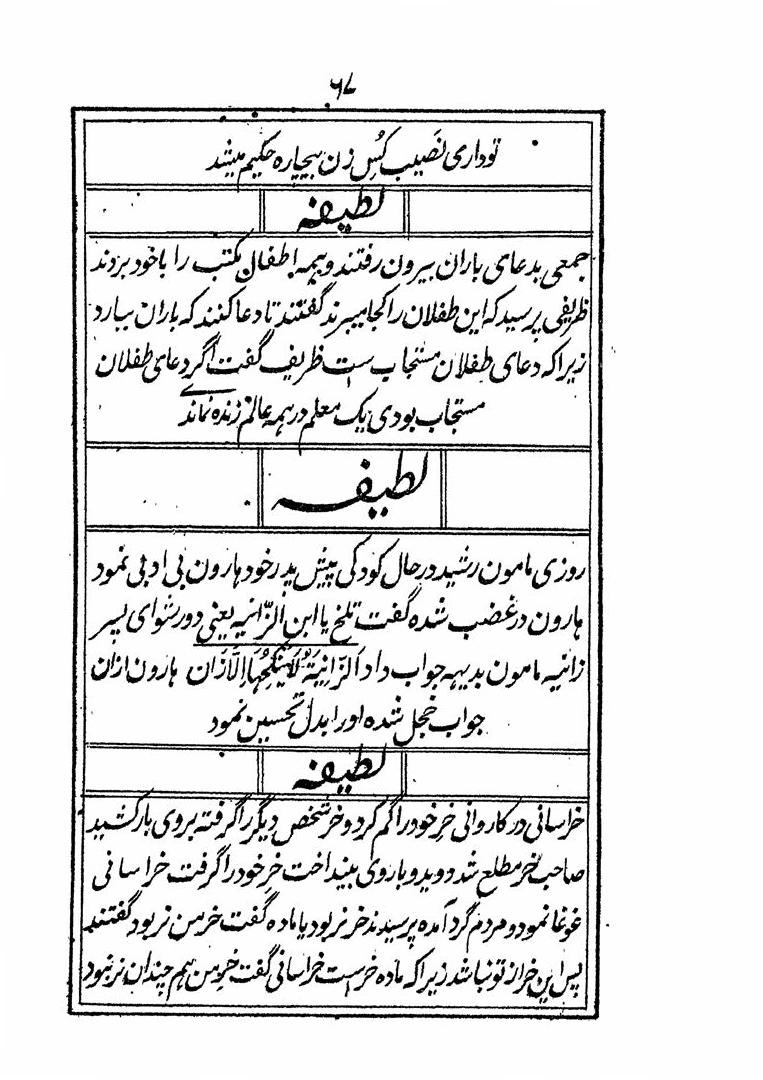 ٦٧
تو داری نَصیب کُسِ زن بیچاره حکیم میشد
لطیفه
جمعی بدعای باران بیرون رفتند و همه اطفال مکتب را با خود بردند
ظریفی پرسید که این طفلان را کجا میبرند گفتند تا دعا کنند که باران ببارد
زیرا که دعای طفلان مستجاب ست ظریف گفت اگر دعای طفلان
مستجاب بودی یک معلم در همه عالم زنده نماندے
لطیفه
روزی مامون رشید در حال کودکی پیش پدر خود هارون بی ادبی نمود
هارون در غضب شده گفت تلخ یا ابن الزّانیه یعنی دور شو ای پسر
زانیه مامون بدیهه جواب داد اَلزّانِیَةُ لَایَنْکِحُهَا اِلَّا زَان هارون ازان
جواب خجل شده او را بدل تحسین نمود
لطیفه
خراسانی در کاروانی خرِ خود را گم کرد و خر شخص دیگر را گرفته بروی بار کشید
صاحب خر مطلع شد دوید و بار وی بینداخت خرِ خود را گرفت خراسانی
غوغا نمود و مردم گرد آمده پرسیدند خر نر بود یا ماده گفت خر من نر بود گفتند
پس این خر از تو نباشد زیرا که ماده خر ست خراسانی گفت خرِ من هم چندان نر نبود